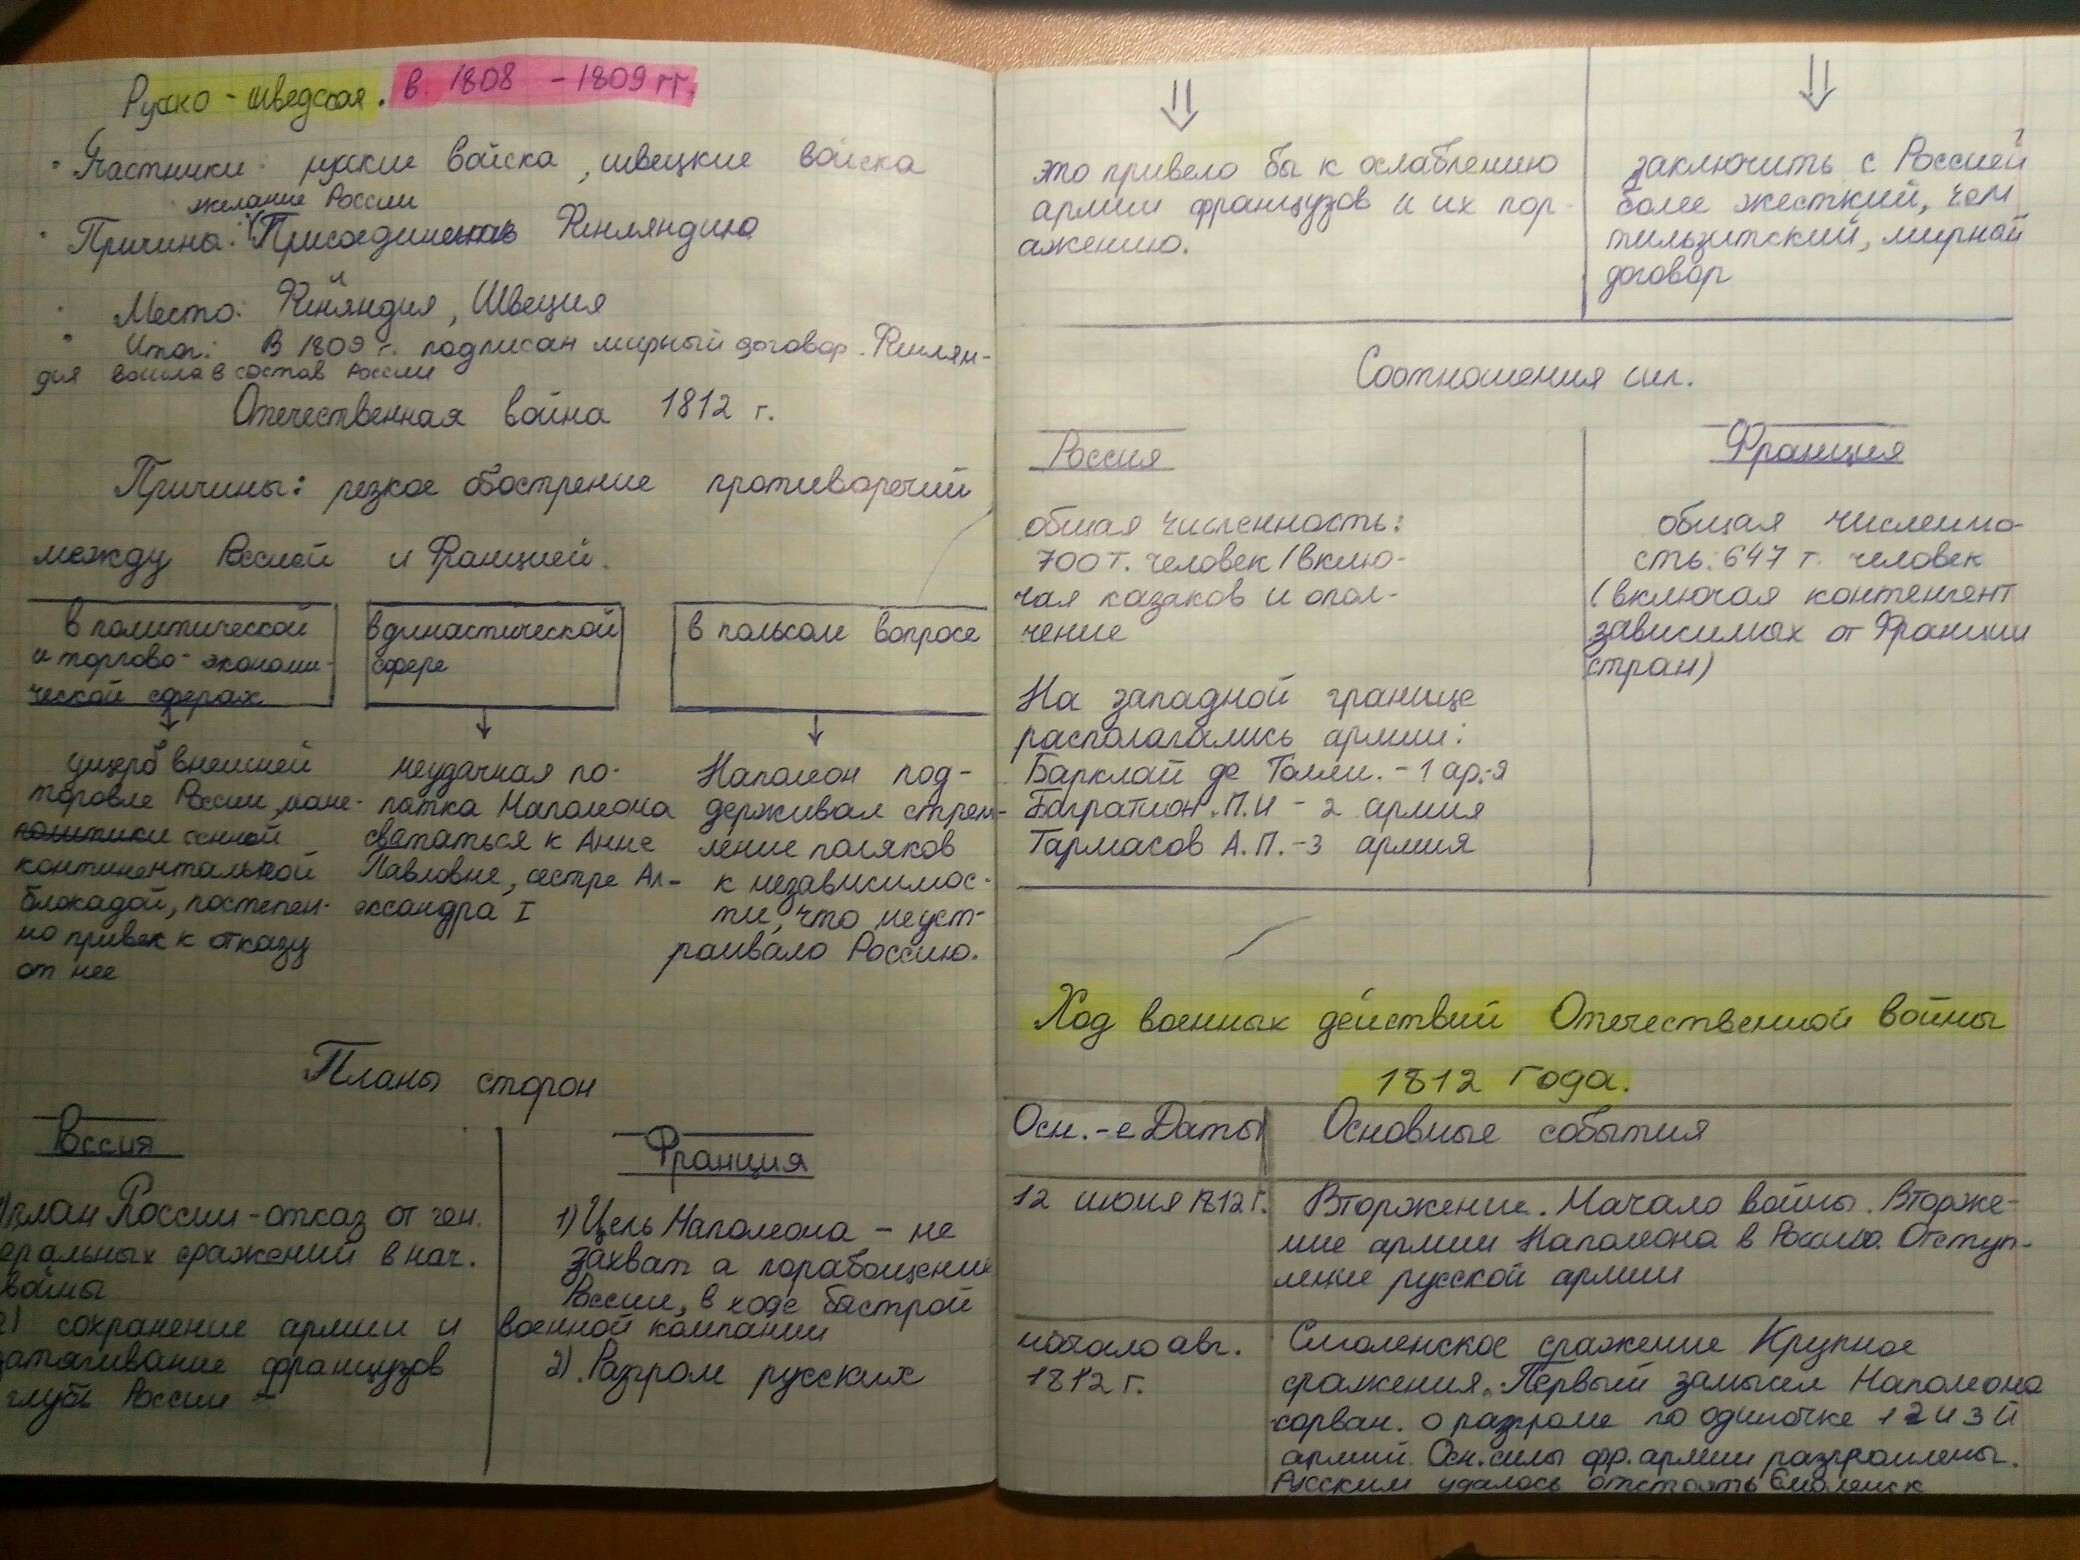 Русско - шведская. в. 1808 - 1809 гг.
Участники: русские войска, швецкие войска
желание России
Причины: Присоединень Финляндию
Место: Финляндия, Швеция
Итог: В 1809 г. подписан мирный договор. Финлян-
дия вошла в состав России
Отечественная война 1812 г.
Причины: резкое обострение противоречий
между Россией и Францией.
в политической
и торгово-экономи-
ческой сферах
в династической
сфере
в польском вопросе
ущерб внешней
торговле России,
политики
континентальной
блокадой, постепен-
но привек к отказу
от нее
неудачная по-
патка Наполеона
свататься к Анне
Павловне, сестре Ал-
ександра I
Наполеон под-
держивал стрем-
ление поляков
к независимос-
ти, что неуст-
раивало Россию.
Планы сторон
Россия
1) план России - отказ от ген.
еральных сражений в нач.
войны
2) сохранение армии и
затягивание французов
глубь России -
Франция
1) Цель Наполеона - не
захват а порабощение
России, в ходе быстрой
военной компании
2). Разгром русских
это привело бы к ослаблению
армии французов и их пор-
ажению.
заключить с Россией
более жесткий, чем
тильзитский, мирной
договор
Соотношения сил.
Россия
общая численность:
700 т. человек (вклю-
чая казаков и опол-
чение
На западной границе
располагались армии:
Барклай де Толли. - 1 ар.-я
Багратион. П.И - 2 армия
Тармасов А.П. - 3 армия
Франция
общая численно-
сть: 647 т. человек
(включая контенгент
зависимых от Франции
стран)
Ход военных действий Отечественной войны
1812 года.
Осн.-е Даты
Основные события
12 июня 1812 г.
Вторжение. Начало войны. Вторже-
ние армии Наполеона в Россию. Отступ-
ление русской армии
начало авг.
1812 г.
Смоленское сражение Крупное
сражения. Первый замысел Наполеона
сорван. о разгроме по одиночке 1 2 и 3 й
армий. Осн. силы фр. армии разгромлены.
Русским удалось отстоять Смоленск